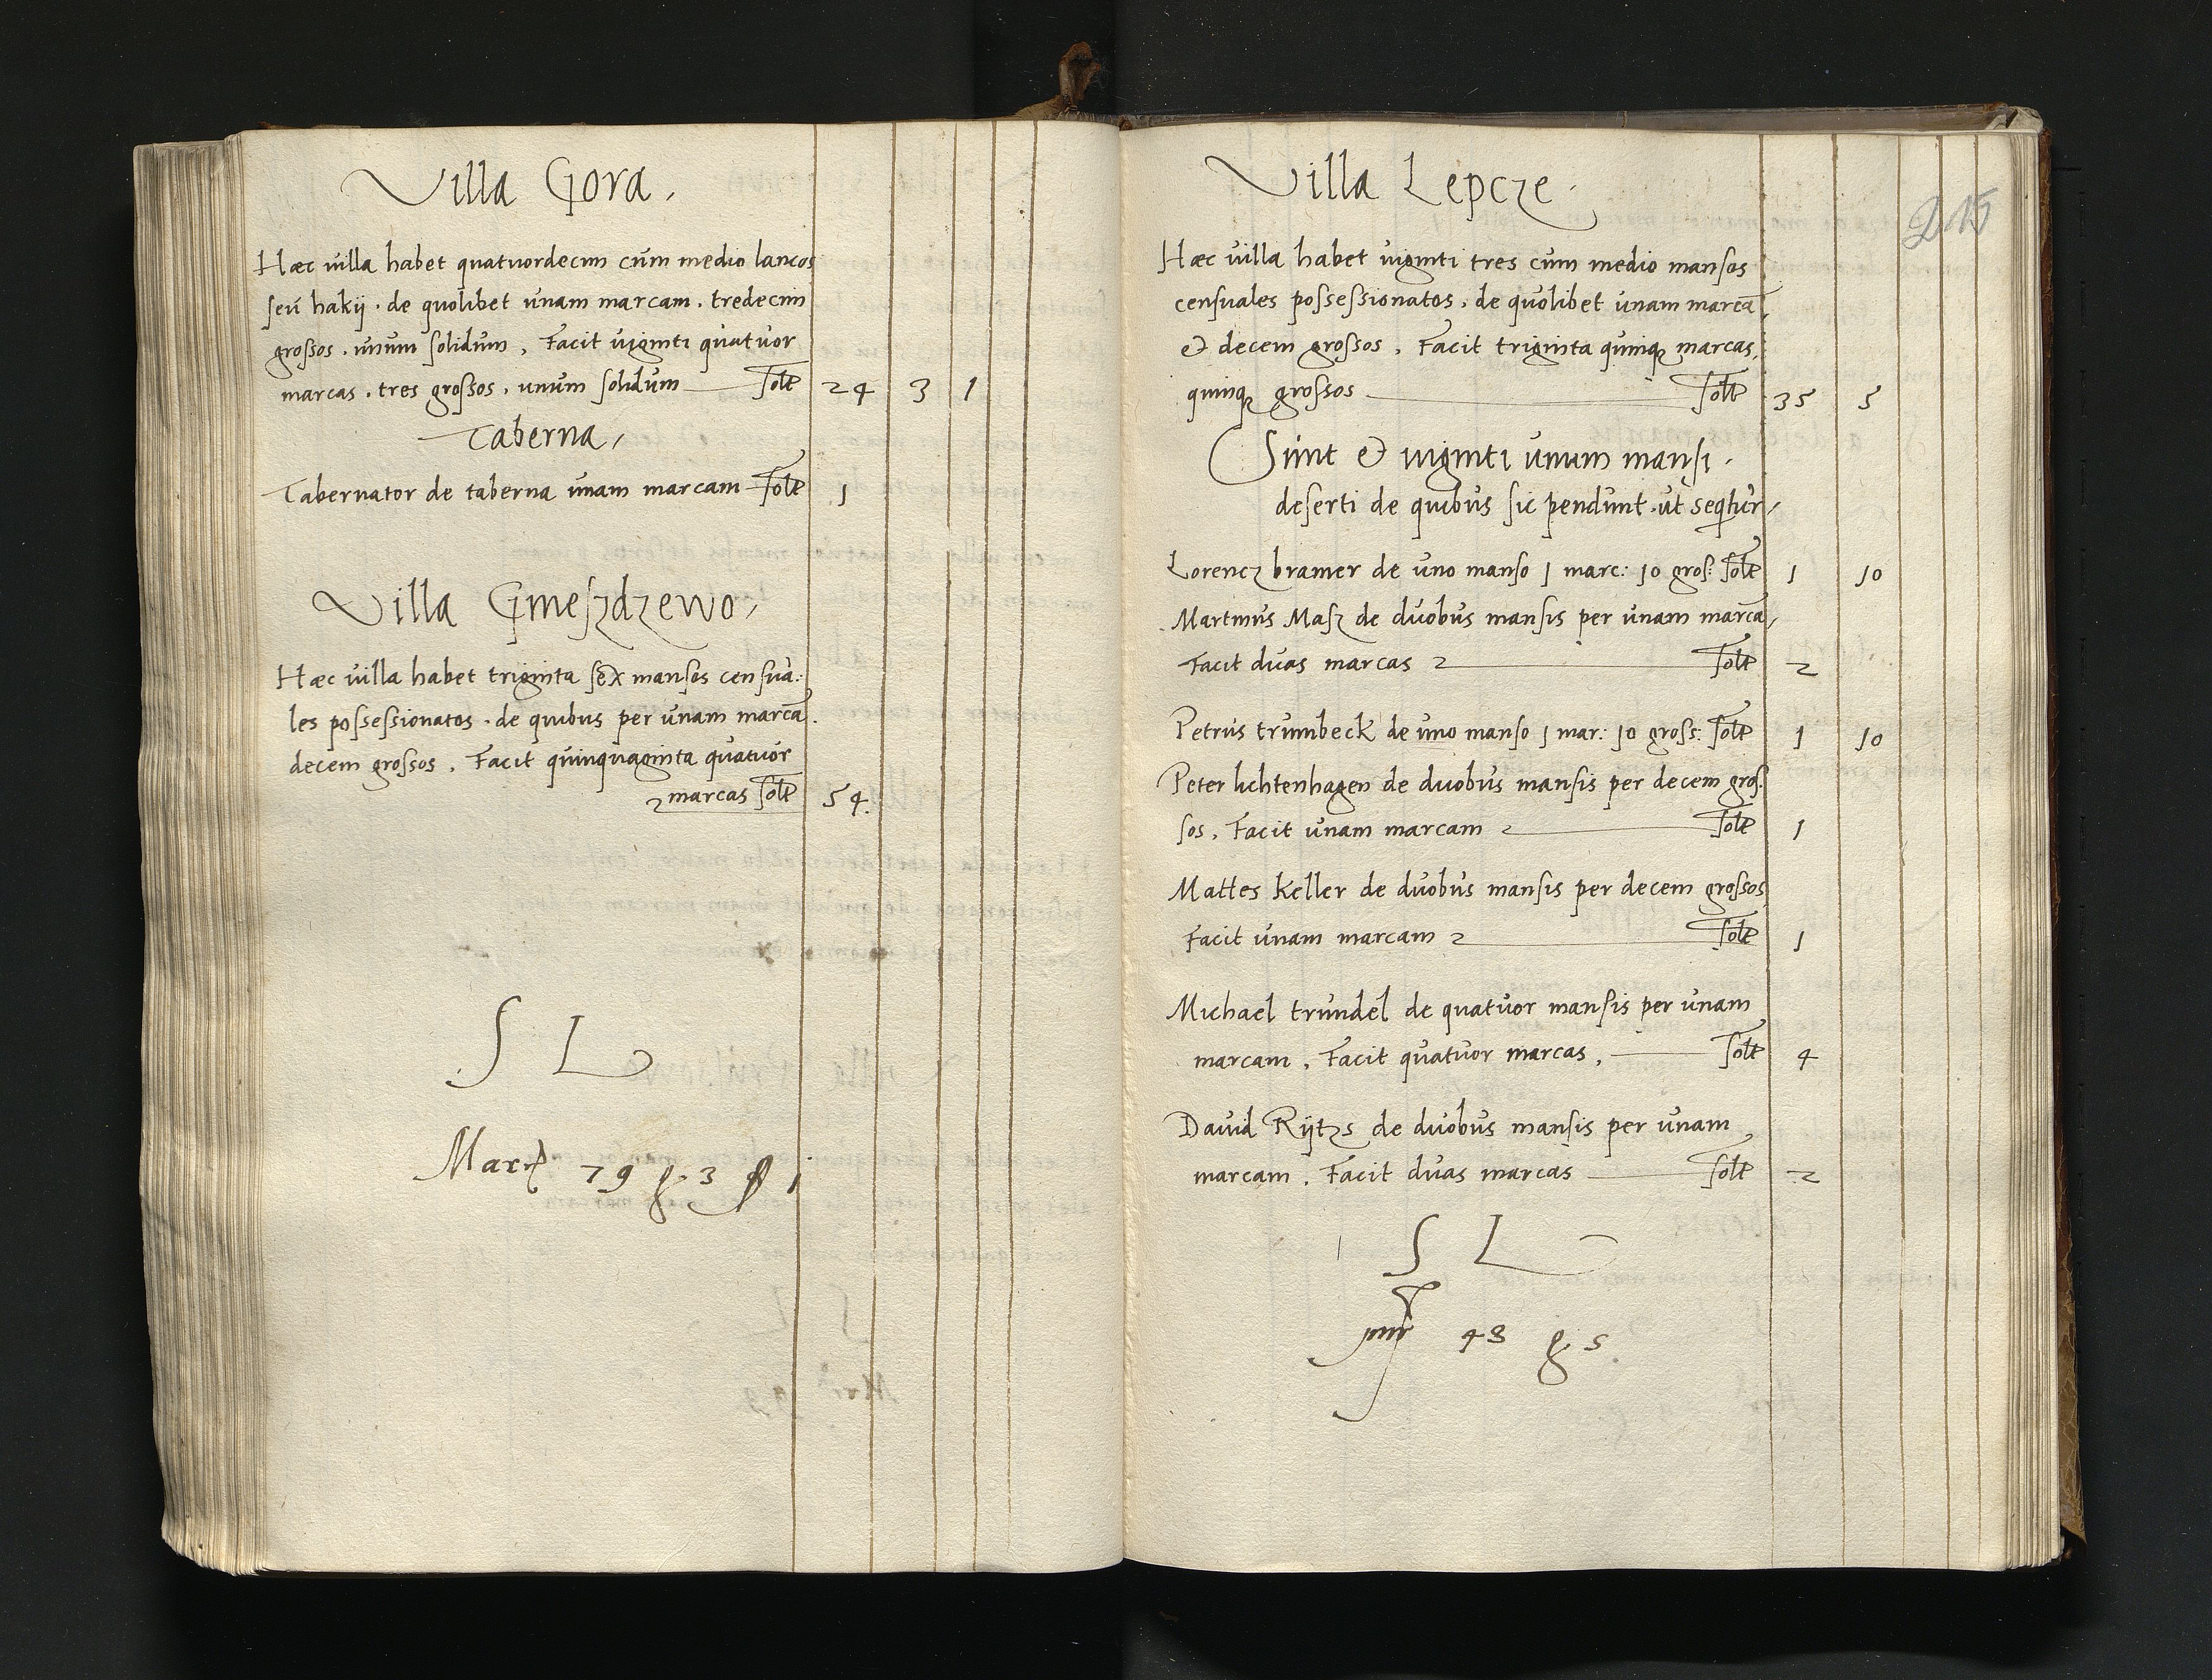 Villa Gora.
Hæc villa habet quatuordecim cum medio laneos
seu hakij. de quolibet unam marcam. tredecim
grossos. unum solidum, Facit viginti quatuor
marcas. tres grossos. unum solidum Solt 24 3 1
Taberna,
Tabernator de taberna unam marcam Solt 1
Villa Gmeszdzewo,
Hæc villa habet triginta sex mansos censua:
les possessionatos. de quibus per unam marcā.
decem grossos. Facit quinquaginta quatuor
marcas Solt 54.
S L
Marc 79 g 3 ß 1
Villa Lepcze.
215
Hæc villa habet viginti tres cum medio mansos
censuales possessionatos. de quolibet unam marcā,
et decem grossos. Facit triginta quinq marcas,
quinq grossos Solt 35 5
Sunt et viginti unum mansi.
deserti de quibus sic pendunt. ut seqtur,
Lorencz bramer de uno manso 1 marc: 10 gros: Solt 1 10
Martinus Masz de duobus mansis per unam marcā,
Facit duas marcas Solt 2
Petrus trumbeck de uno manso 1 mar: 10 gross: Solt 1 10
Peter lichtenhagen de duobus mansis per decem gros:
sos. Facit unam marcam Solt 1
Mattes Keller de duobus mansis per decem grossos
Facit unam marcam Solt 1
Michael trundel de quatuor mansis per unam
marcam. Facit quatuor marcas. Solt 4
David Rijtzs de duobus mansis per unam
marcam. Facit duas marcas Solt 2
S L
mr 48 g 5.